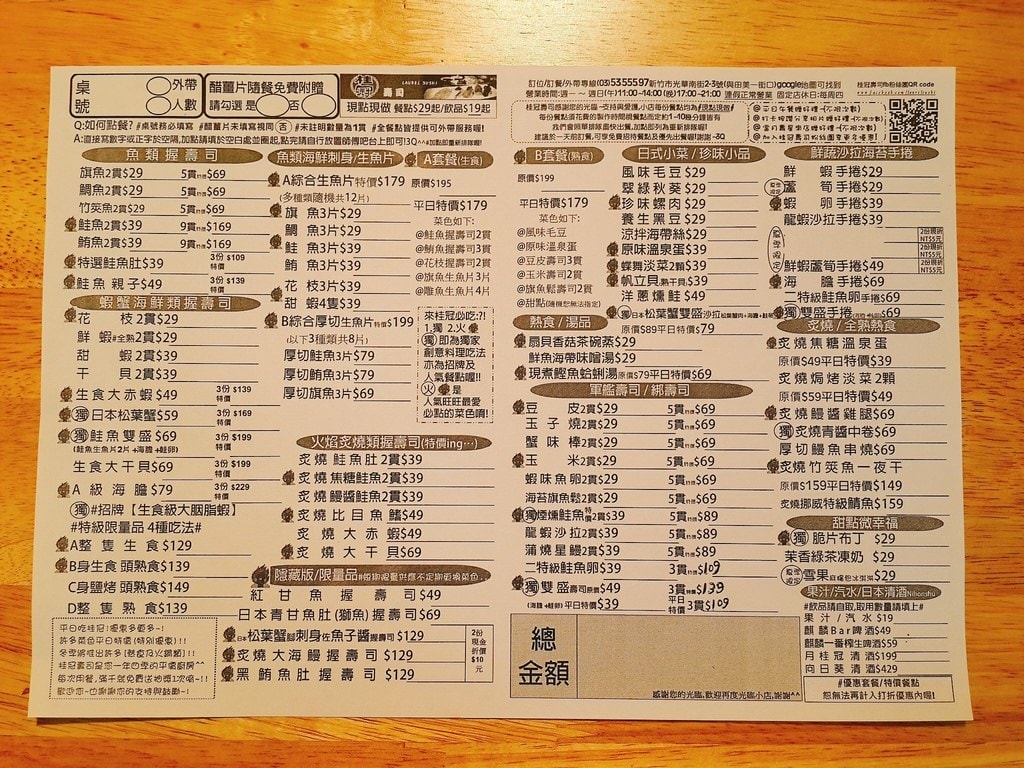 桌號
外帶
人數
醋薑片隨餐免費附贈
請勾選 是 否
桂冠壽司
LAUREL SUSHI
現點現做 餐點$29起/飲品$19起
訂位/訂餐/外帶專線(03)5355597新竹市光華南街2-3號(與田美一街口)google地圖可找到
營業時間:週一～週日(午)11:00-14:00 (晚)17:00-21:00 連假正常營業 固定店休日:每週四
桂冠壽司fb粉絲團QR code
Q:如何點餐? #桌號務必填寫 #醋薑片未填寫視同(否) #未註明數量為1貫 #全餐點皆提供可外帶服務喔!
A:直接寫數字或正字於空隔,加點請填於空白處並圈起,點完請自行放置師傅吧台上即可!3Q^^#加點即重新排隊喔!
桂冠壽司感謝您的光臨、支持與愛護,小店每份餐點均為#現點現做#
每份餐點須花費的製作時間視餐點而定約1~10分鐘皆有
我們會簡單排隊盡快出餐,加點即列為重新排隊喔!
建議於一天前訂餐,可享免費招待餐點及優先出餐喔!謝謝~3Q
魚類握壽司
旗魚2貫$29 5貫特價$69
鯛魚2貫$29 5貫特價$69
竹莢魚2貫$29 5貫特價$69
鮭魚2貫$39 9貫特價$169
鮪魚2貫$39 9貫特價$169
特選鮭魚肚$39 3份$109特價
鮭魚親子$49 3份$139特價
蝦蟹海鮮類握壽司
花枝2貫$29
鮮蝦#全熟2貫$29
甜蝦2貫$39
干貝2貫$39
生食大赤蝦$49 3份$139特價
(獨)日本松葉蟹$59 3份$169特價
(獨)鮭魚雙盛$69 3份$199特價
(鮭魚生魚片2片+海膽+鮭卵)
生食大干貝$69 3份$199特價
A級海膽$79 3份$229特價
(獨)#招牌【生食級大胭脂蝦】
#特級限量品 4種吃法#
A整隻生食$129
B身生食 頭熟食$139
C身鹽烤 頭熟食$149
D整隻熟食$139
平日吃桂冠!優惠多更多~!
許多菜色平日特價(特別優惠)!!
桂冠壽司是您一年四季的平價廚房^^
魚類海鮮刺身/生魚片
A綜合生魚片特價$179
(多種類隨機共12片)
旗魚3片$29
鯛魚3片$29
鮭魚3片$39
鮪魚3片$39
花枝3片$39
甜蝦4隻$39
B綜合厚切生魚片特價$199
(以下3種類共8片)
厚切鮭魚3片$79
厚切鮪魚3片$79
厚切旗魚3片$69
A套餐(生食)
原價$195
平日特價$179
菜色如下:
@鮭魚握壽司2貫
@鮪魚握壽司3貫
@花枝握壽司2貫
@旗魚生魚片3片
@鵰魚生魚片4片
來桂冠必吃:?!
1.獨 2.火
(獨)即為獨家
創意料理吃法
亦為招牌及
人氣餐點喔!!
(火)是
人氣旺旺最愛
必點的菜色唷!!
火焰炙燒類握壽司(特價ing…)
炙燒鮭魚肚2貫$39
炙燒焦糖鮭魚2貫$39
炙燒鰻醬鮭魚2貫$39
炙燒比目魚鰭$49
炙燒大赤蝦$49
炙燒大干貝$69
隱藏版/限量品
紅甘魚握壽司$49
日本青甘魚肚(獅魚)握壽司$69
日本松葉蟹腳刺身佐魚子醬握壽司$129
炙燒大海鰻握壽司$129
黑鮪魚肚握壽司$129
2份現金折價$10元
B套餐(熟食)
原價$199
平日特價$179
菜色如下:
@風味毛豆
@原味溫泉蛋
@豆皮壽司3貫
@玉米壽司2貫
@旗魚鬆壽司2貫
@甜點(隨機恕無法指定)
日式小菜/珍味小品
風味毛豆$29
翠綠秋葵$29
珍味螺肉$29
養生黑豆$29
涼拌海帶絲$29
原味溫泉蛋$39
蝶舞淡菜2顆$39
帆立貝.熟干貝$39
洋蔥燻鮭$49
(獨)日本松葉蟹雙盛沙拉
原價$89平日特價$79
熱食/湯品
扇貝香菇茶碗蒸$29
鮮魚海帶味噌湯$29
現煮鰹魚蛤蜊湯原價$79平日特價$69
軍艦壽司/綁壽司
豆皮2貫$29 5貫特價$69
玉子燒2貫$29 5貫特價$69
蟹味棒2貫$29 5貫特價$69
玉米2貫$29 5貫特價$69
蝦味魚卵2貫$29 5貫特價$69
海苔旗魚鬆2貫$29 5貫特價$69
(獨)煙燻鮭魚特價2貫$39 5貫特價$89
龍蝦沙拉2貫$39 5貫特價$89
蒲燒星鰻2貫$39 5貫特價$89
二特級鮭魚卵$39 3貫$109
(獨)雙盛壽司原價$49 3貫特價$139
(海膽+鮭卵)平日特價$39 平日特價3貫$109
總金額
感謝您的光臨,歡迎再度光臨小店,謝謝^^
鮮蔬沙拉海苔手捲
鮮蝦手捲$29
蘆筍手捲$29
蝦卵手捲$39
龍蝦沙拉手捲$39
鮮蝦蘆筍手捲$49
海膽手捲$69
二特級鮭魚卵手捲$69
(獨)雙盛手捲
2份現折NT$5元
2份現折NT$5元
2份現折NT$5元
炙燒/全熟熱食
炙燒焦糖溫泉蛋
原價$49平日特價$39
炙燒焗烤淡菜2顆
原價$59平日特價$49
炙燒鰻醬雞腿$69
(獨)炙燒青醬中卷$69
厚切鰻魚串燒$69
炙燒竹莢魚一夜干
原價$159平日特價$149
炙燒挪威特級鯖魚$159
甜點微幸福
(獨)脆片布丁 $29
茉香綠茶凍奶 $29
雪果麻糬包冰淇淋$29
果汁/汽水/日本清酒Nihonshu
#飲品請自取,取用數量請填上#
果汁/汽水$19
麒麟Bar啤酒$49
麒麟一番榨生啤酒$59
月桂冠清酒$199
向日葵清酒$429
#優惠套餐/特價餐點
恕無法再計入打折優惠內喔!